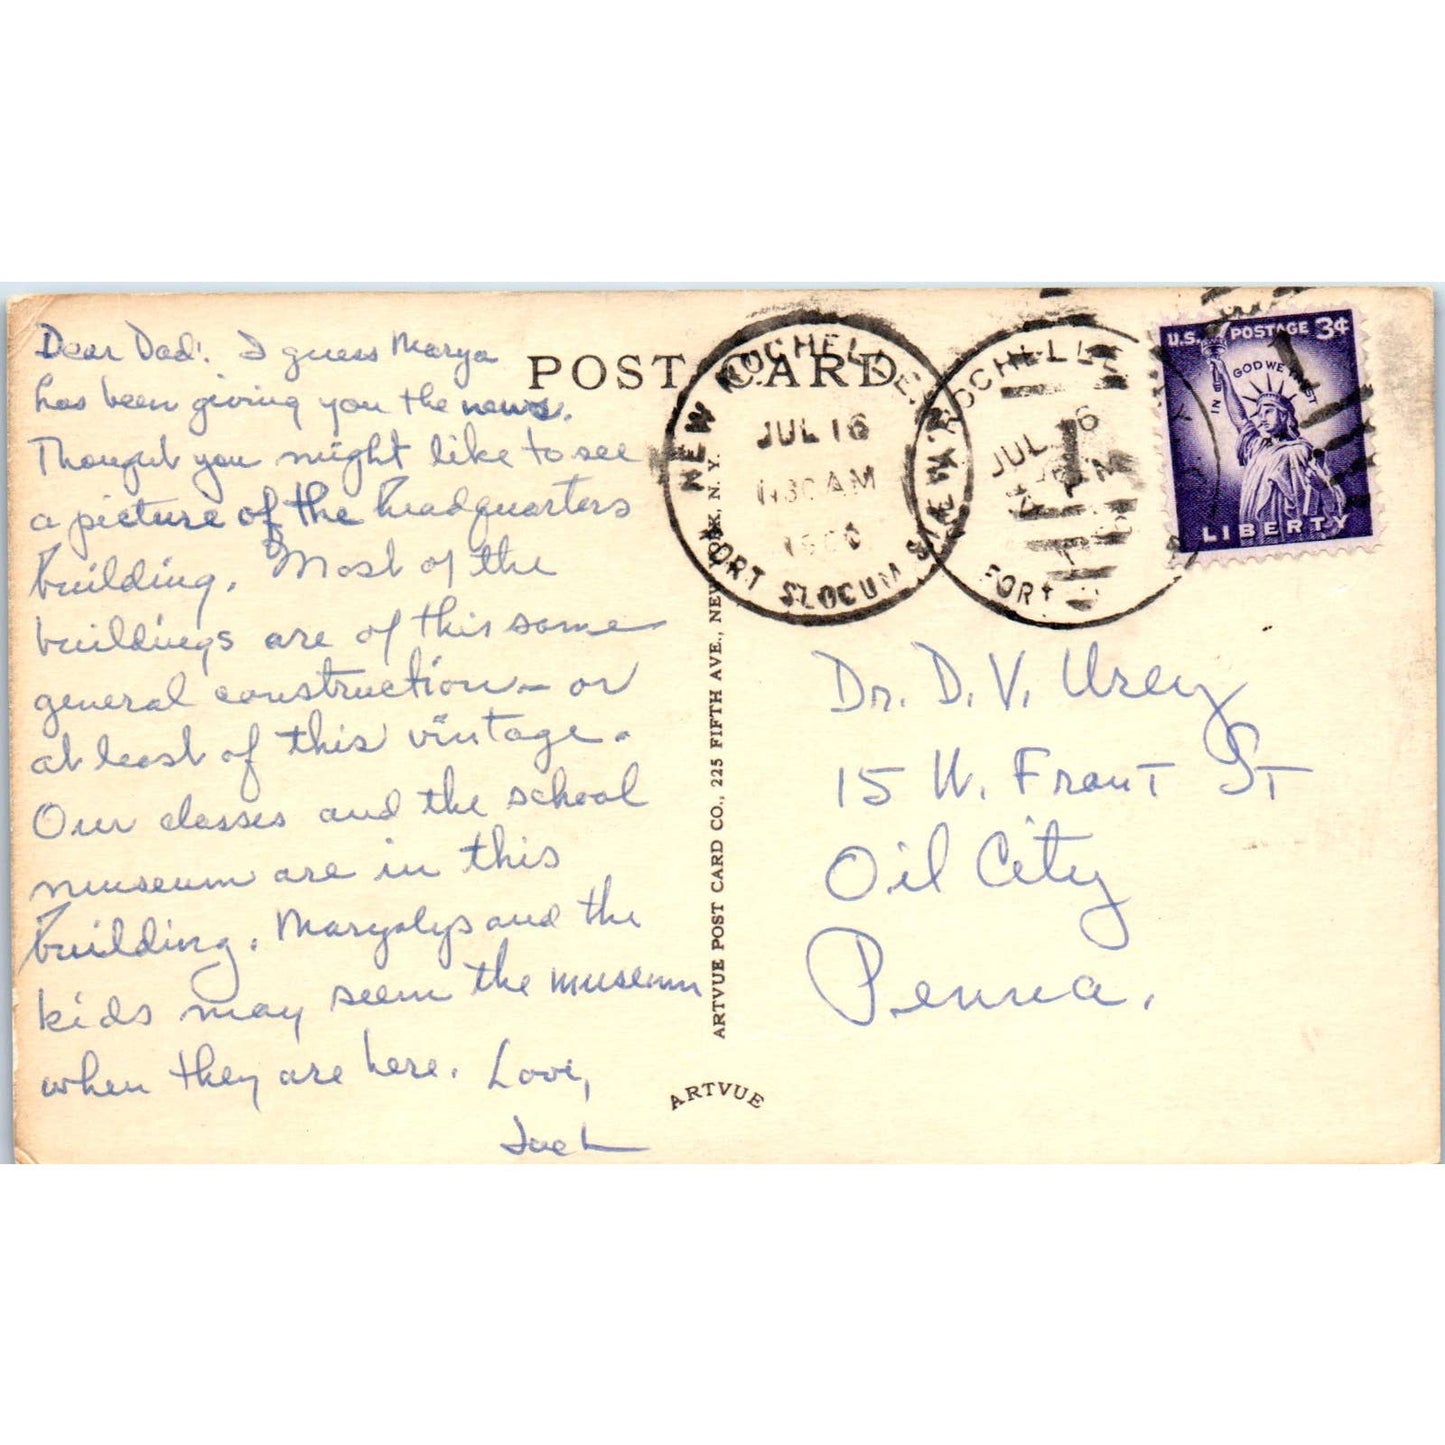 Dear Dad: I guess Marya
has been giving you the news.
Thought you might like to see
a picture of the headquarters
building. Most of the
buildings are of this same
general construction - or
at least of this vintage.
Our classes and the school
museum are in this
building. Maryalys and the
kids may seem the museum
when they are here. Love,
Jack
POST CARD
ARTVUE POST CARD CO., 225 FIFTH AVE., NEW YORK, N. Y.
ARTVUE
NEW ROCHELLE, N.Y.
JUL 16
AM
FORT SLOCUM
NEW ROCHELLE
JUL 16
FORT
U.S. POSTAGE 3¢
IN GOD WE TRUST
LIBERTY
Dr. D. V. Urey
15 W. Front St
Oil City
Penna.